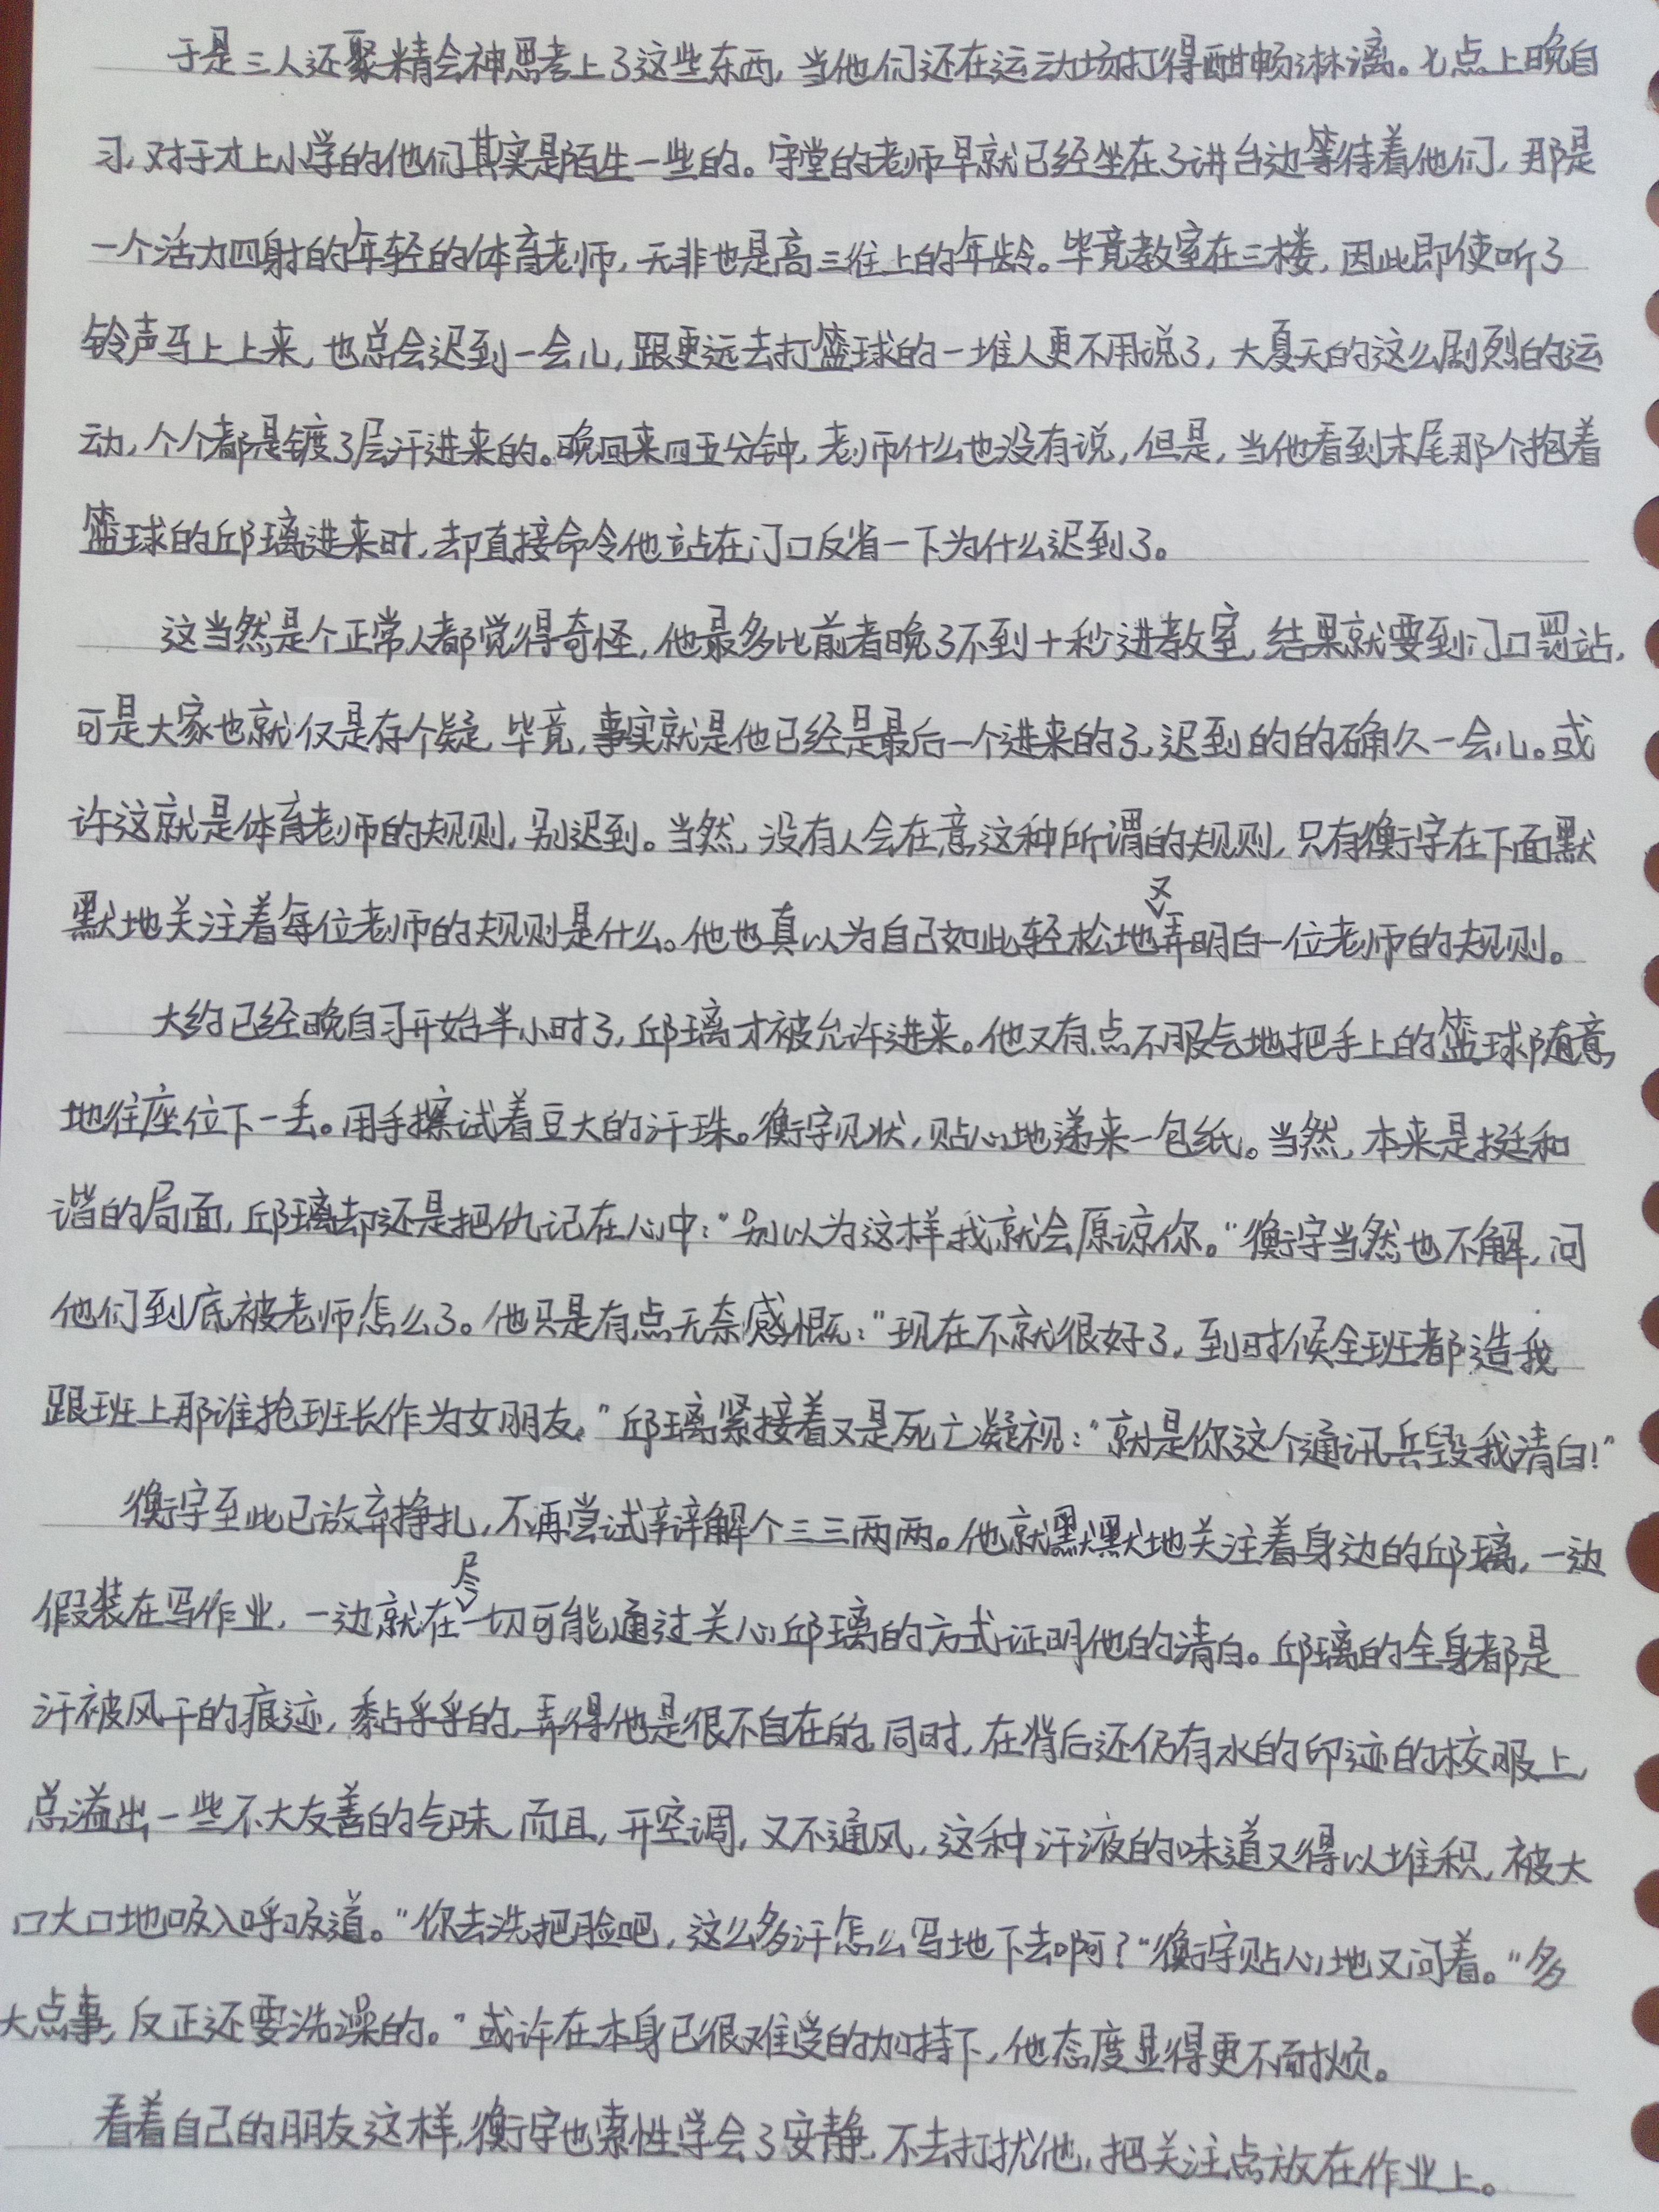 于是三人还聚精会神思考上了这些东西，当他们还在运动场打得酣畅淋漓。七点上晚自
习，对于才上小学的他们其实是陌生一些的。守堂的老师早就已经坐在了讲台边等待着他们，那是
一个活力四射的年轻的体育老师，无非也是高三往上的年龄。毕竟教室在三楼，因此即使听了
铃声马上上来，也总会迟到一会儿，跟更远去打篮球的一堆人更不用说了，大夏天的这么剧烈的运
动，个个都是镀了层汗进来的。晚回来四五分钟，老师什么也没有说，但是，当他看到末尾那个抱着
篮球的邱璃进来时，却直接命令他站在门口反省一下为什么迟到了。
这当然是个正常人都觉得奇怪，他最多比前者晚了不到十秒进教室，结果就要到门口罚站，
可是大家也就仅是存个疑，毕竟，事实就是他已经是最后一个进来的了，迟到的的确久一会儿。或
许这就是体育老师的规则，别迟到。当然，没有人会在意这种所谓的规则，只有衡宇在下面默
默地关注着每位老师的规则是什么。他也真以为自己如此轻松地又弄明白一位老师的规则。
大约已经晚自习开始半小时了，邱璃才被允许进来。他又有点不服气地把手上的篮球随意
地往座位下一丢。用手擦试着豆大的汗珠。衡宇见状，贴心地递来一包纸。当然，本来是挺和
谐的局面，邱璃却还是把仇记在心中：“别以为这样我就会原谅你。”衡宇当然也不解，问
他们到底被老师怎么了。他只是有点无奈感慨：“现在不就很好了，到时候全班都造我
跟班上那谁抢班长作为女朋友。”邱璃紧接着又是死亡凝视：“就是你这个通讯兵毁我清白！”
衡宇至此已放弃挣扎，不再尝试辩解个三三两两。他就默默地关注着身边的邱璃，一边
假装在写作业，一边就在尽一切可能通过关心邱璃的方式证明他的清白。邱璃的全身都是
汗被风干的痕迹，黏乎乎的，弄得他是很不自在的，同时，在背后还仍有水的印迹的校服上，
总溢出一些不大友善的气味，而且，开空调，又不通风，这种汗液的味道又得以堆积，被大
口大口地吸入呼吸道。“你去洗把脸吧，这么多汗怎么写地下去啊？”衡宇贴心地又问着。“多
大点事，反正还要洗澡的。”或许在本身已很难受的加持下，他态度显得更不耐烦。
看着自己的朋友这样，衡宇也索性学会了安静，不去打扰他，把关注点放在作业上。